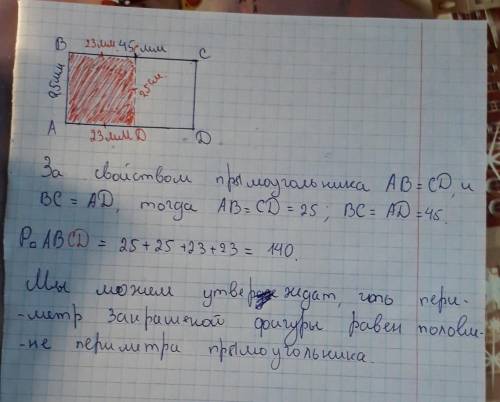 B 23мм 45 мм C
25мм 25мм
A 23мм D D
За свойством прямоугольника AB = CD, и
BC = AD, тогда AB = CD = 25; BC = AD = 45.
P▫ABCD = 25 + 25 + 23 + 23 = 140.
Мы можем утверждат, что пери-
-метр закрашеной фигуры равен полови-
-не периметра прямоугольника.